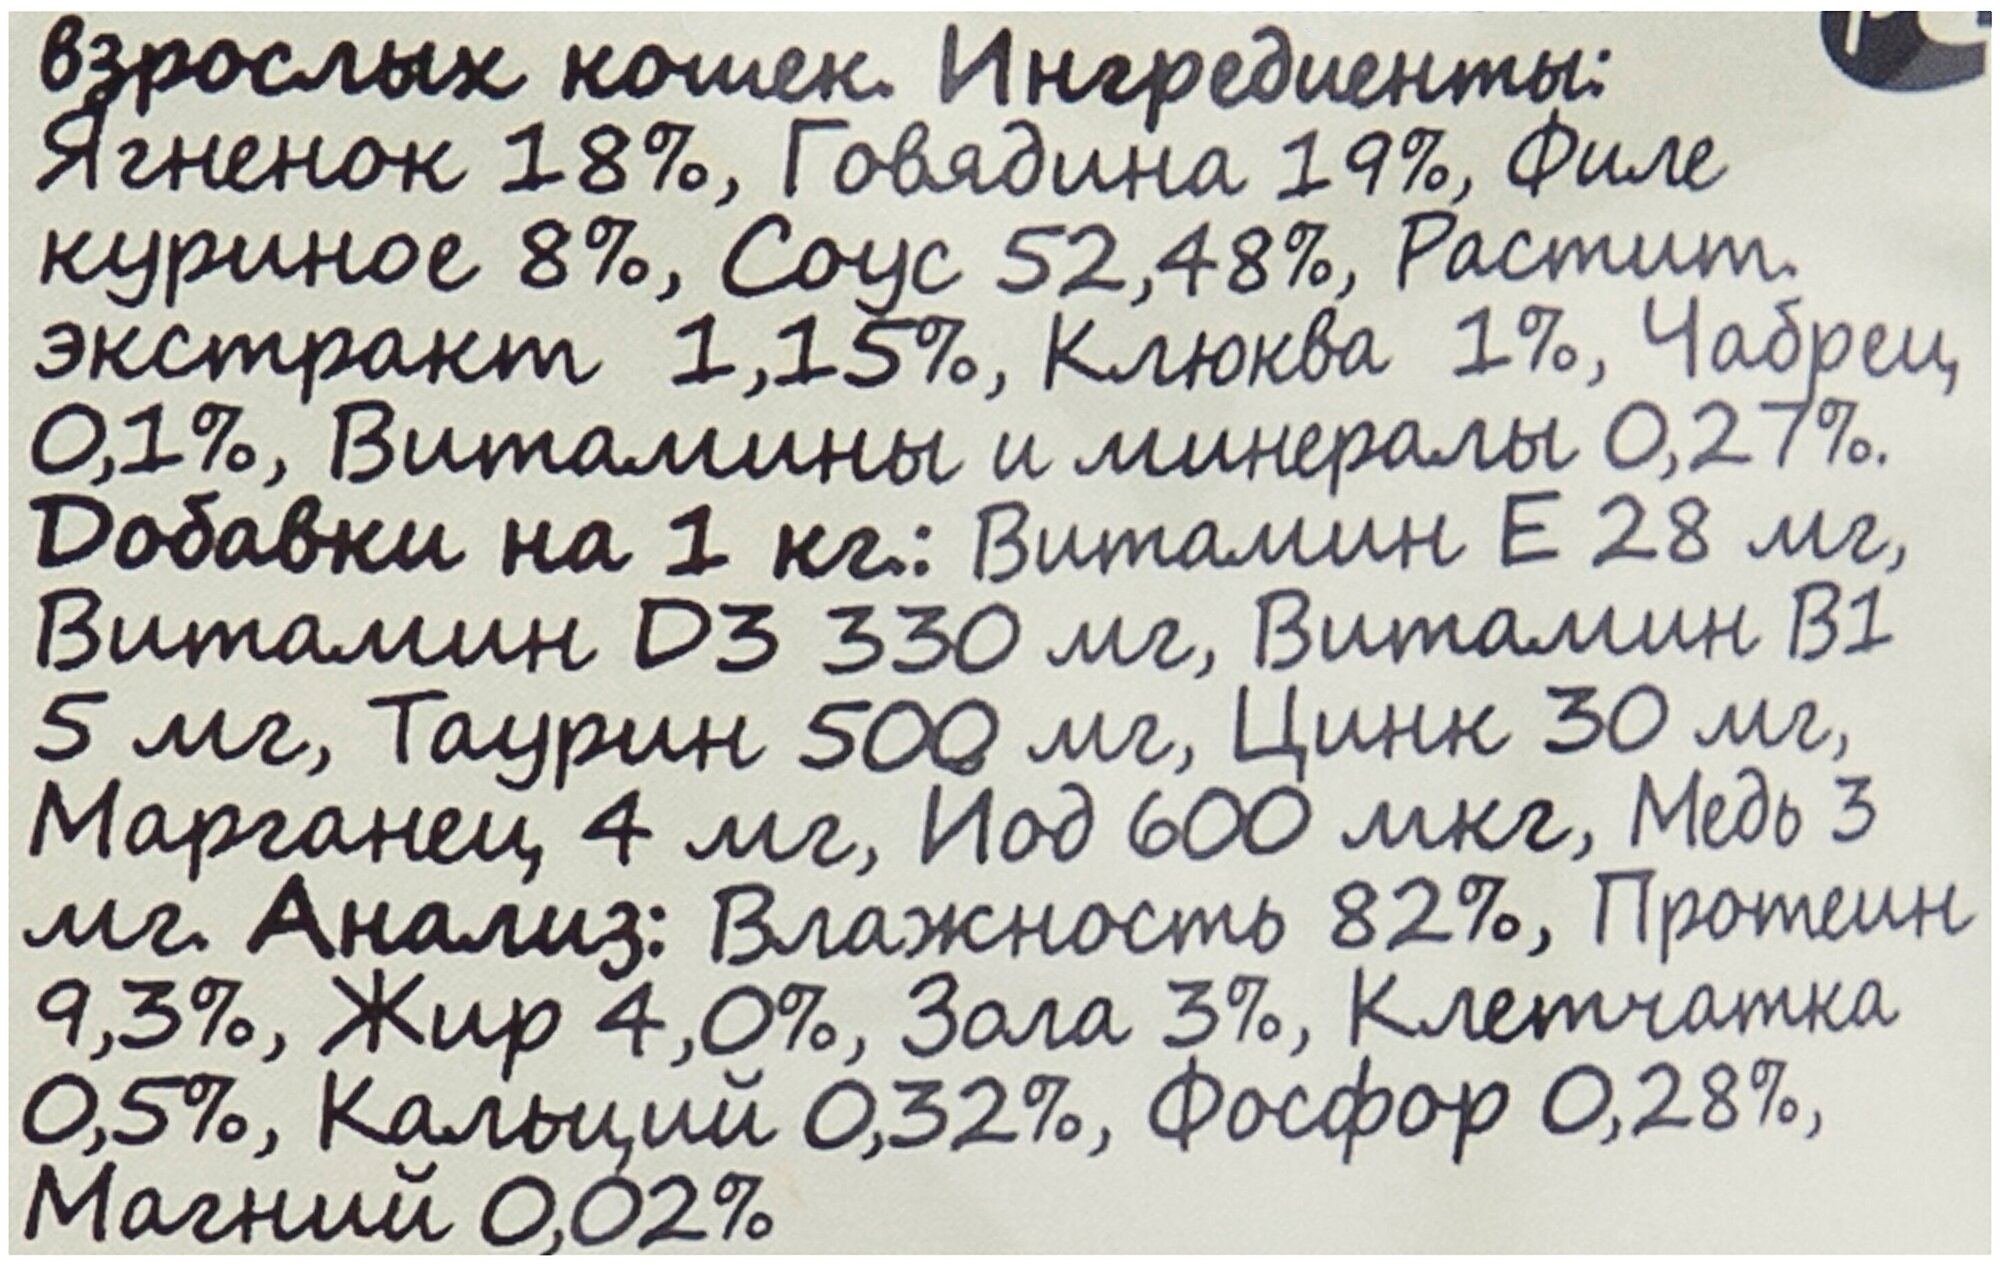 взрослых кошек. Ингредиенты:
Ягненок 18%, Говядина 19%, Филе
куриное 8%, Соус 52,48%, Растит.
экстракт 1,15%, Клюква 1%, Чабрец
0,1%, Витамины и минералы 0,27%.
Добавки на 1 кг.: Витамин Е 28 мг,
Витамин D3 330 мг, Витамин В1
5 мг, Таурин 500 мг, Цинк 30 мг,
Марганец 4 мг, Иод 600 мкг, Медь 3
мг. Анализ: Влажность 82%, Протеин
9,3%, Жир 4,0%, Зола 3%, Клетчатка
0,5%, Кальций 0,32%, Фосфор 0,28%,
Магний 0,02%